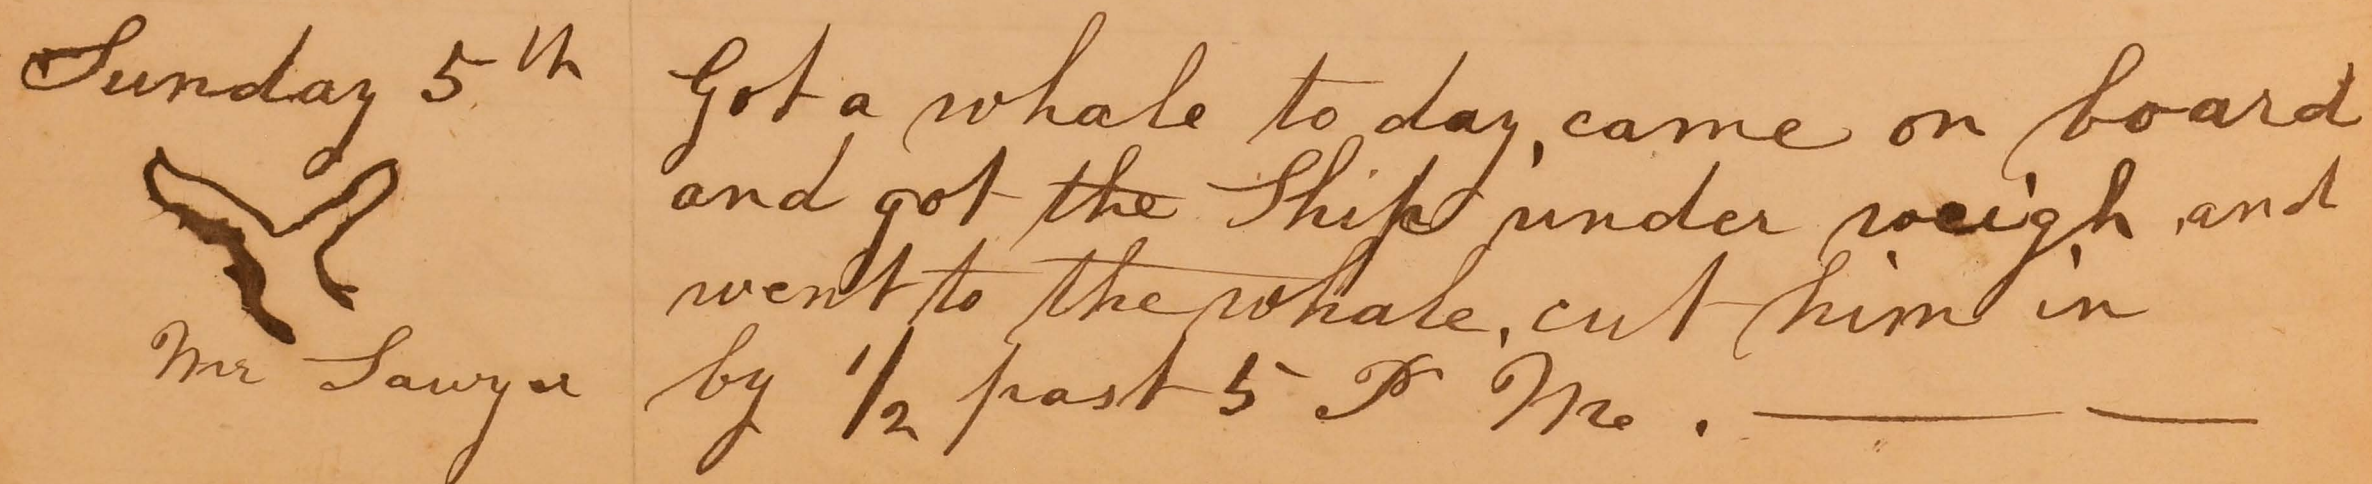 Sunday 5th
Got a whale to day, came on board
and got the Ship under weigh, and
went to the whale, cut him in
Mr Sawyer
by 1/2 past 5 P M. ——